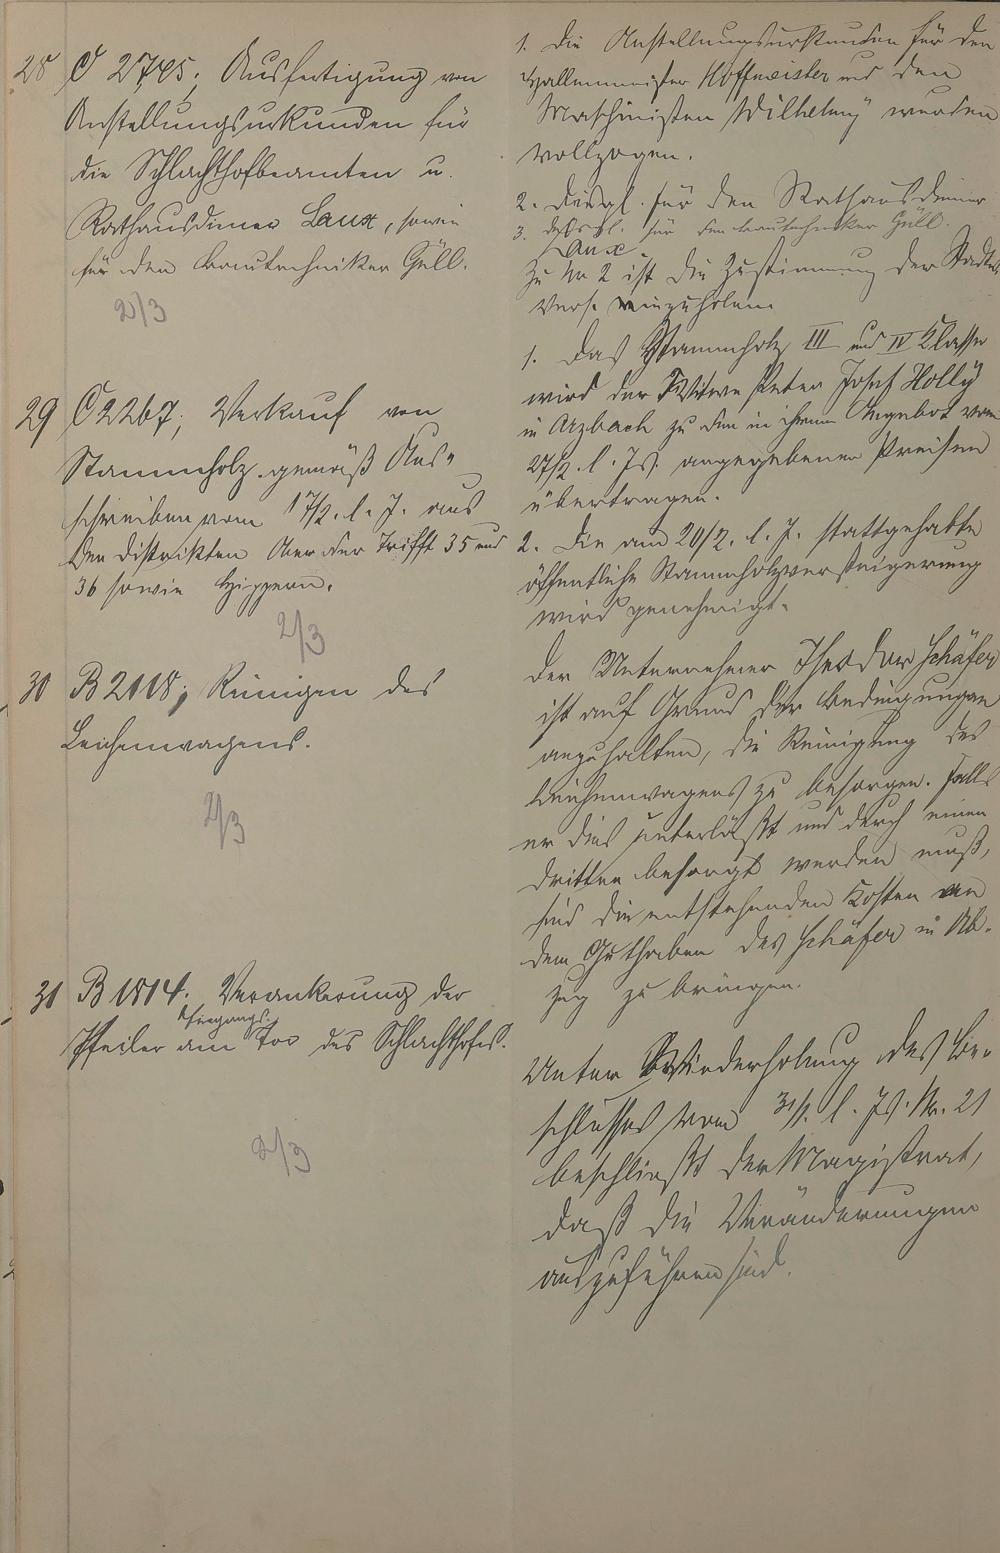 28 C 2745; Ausfertigung von
Anstellungsurkunden für
die Schlachthofbeamten u.
Rathausdiener Laux, sowie
für den Bautechniker Güll.
2/3
1. Die Anstellungsurkunden für den
Hallenmeister Hoffmeister und den
Maschinisten Wilhelmy werden
vollzogen.
2. desgl. für den Rathausdiener
Laux.
3. desgl. für den Bautechniker Güll.
Zu Nr 2 ist die Zustimmung der Stadtv.
Vers. einzuholen.
29 C 2267; Verkauf von
Stammholz gemäß Aus-
schreiben vom 17/2. l. J. aus
den Distrikten Ober der Trifft 35 und
36 sowie
2/3
1. Das Stammholz III und IV Klasse
wird der Witwe Peter Josef Holly
in Arzbach zu den in ihrem Angebot vom
27/2. l. Js. angegebenen Preisen
übertragen.
2. Die am 20/2. l. J. stattgehabte
öffentliche Stammholzversteigerung
wird genehmigt.
30 B 2118; Reinigen des
Leichenwagens.
2/3
Der Unternehmer Theodor Schäfer
ist auf Grund der Bedingungen
anzuhalten, die Reinigung des
Leichenwagens zu besorgen. Falls
er dies unterläßt und durch einen
Dritten besorgt werden muß,
sind die entstehenden Kosten an
dem Guthaben des Schäfer in Ab-
zug zu bringen.
31 B 1814. Verankerung der
Pfeiler am Eingangs-Tor des Schlachthofes.
2/3
Unter Wiederholung des Be-
schlusses vom 31/1. l. Js. Nr. 21
beschließt der Magistrat,
daß die Veränderungen
auszuführen sind.